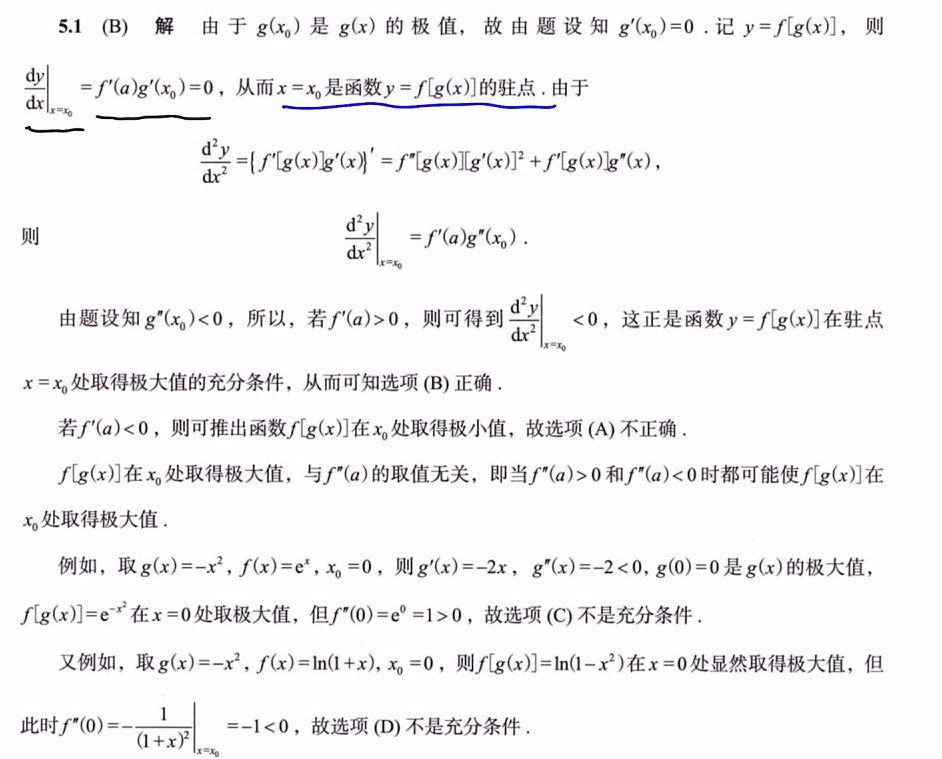 5.1 (B) 解 由于 g(x₀) 是 g(x) 的极值，故由题设知 g′(x₀)=0 . 记 y=f[g(x)]，则
dy/dx|ₓ₌ₓ₀ =f′(a)g′(x₀)=0，从而 x=x₀ 是函数 y=f[g(x)] 的驻点 . 由于
d²y/dx² ={f′[g(x)]g′(x)}′ =f″[g(x)][g′(x)]² +f′[g(x)]g″(x)，
则 d²y/dx²|ₓ₌ₓ₀ =f′(a)g″(x₀) .
由题设知 g″(x₀)<0，所以，若 f′(a)>0，则可得到 d²y/dx²|ₓ₌ₓ₀ <0，这正是函数 y=f[g(x)] 在驻点
x=x₀ 处取得极大值的充分条件，从而可知选项 (B) 正确 .
若 f′(a)<0，则可推出函数 f[g(x)] 在 x₀ 处取得极小值，故选项 (A) 不正确 .
f[g(x)] 在 x₀ 处取得极大值，与 f″(a) 的取值无关，即当 f″(a)>0 和 f″(a)<0 时都可能使 f[g(x)] 在
x₀ 处取得极大值 .
例如，取 g(x)=−x²，f(x)=eˣ，x₀=0，则 g′(x)=−2x，g″(x)=−2<0, g(0)=0 是 g(x) 的极大值，
f[g(x)]=e^(−x²) 在 x=0 处取极大值，但 f″(0)=e⁰=1>0，故选项 (C) 不是充分条件 .
又例如，取 g(x)=−x²，f(x)=ln(1+x), x₀=0，则 f[g(x)]=ln(1−x²) 在 x=0 处显然取得极大值，但
此时 f″(0)=−1/(1+x)²|ₓ₌ₓ₀ =−1<0，故选项 (D) 不是充分条件 .